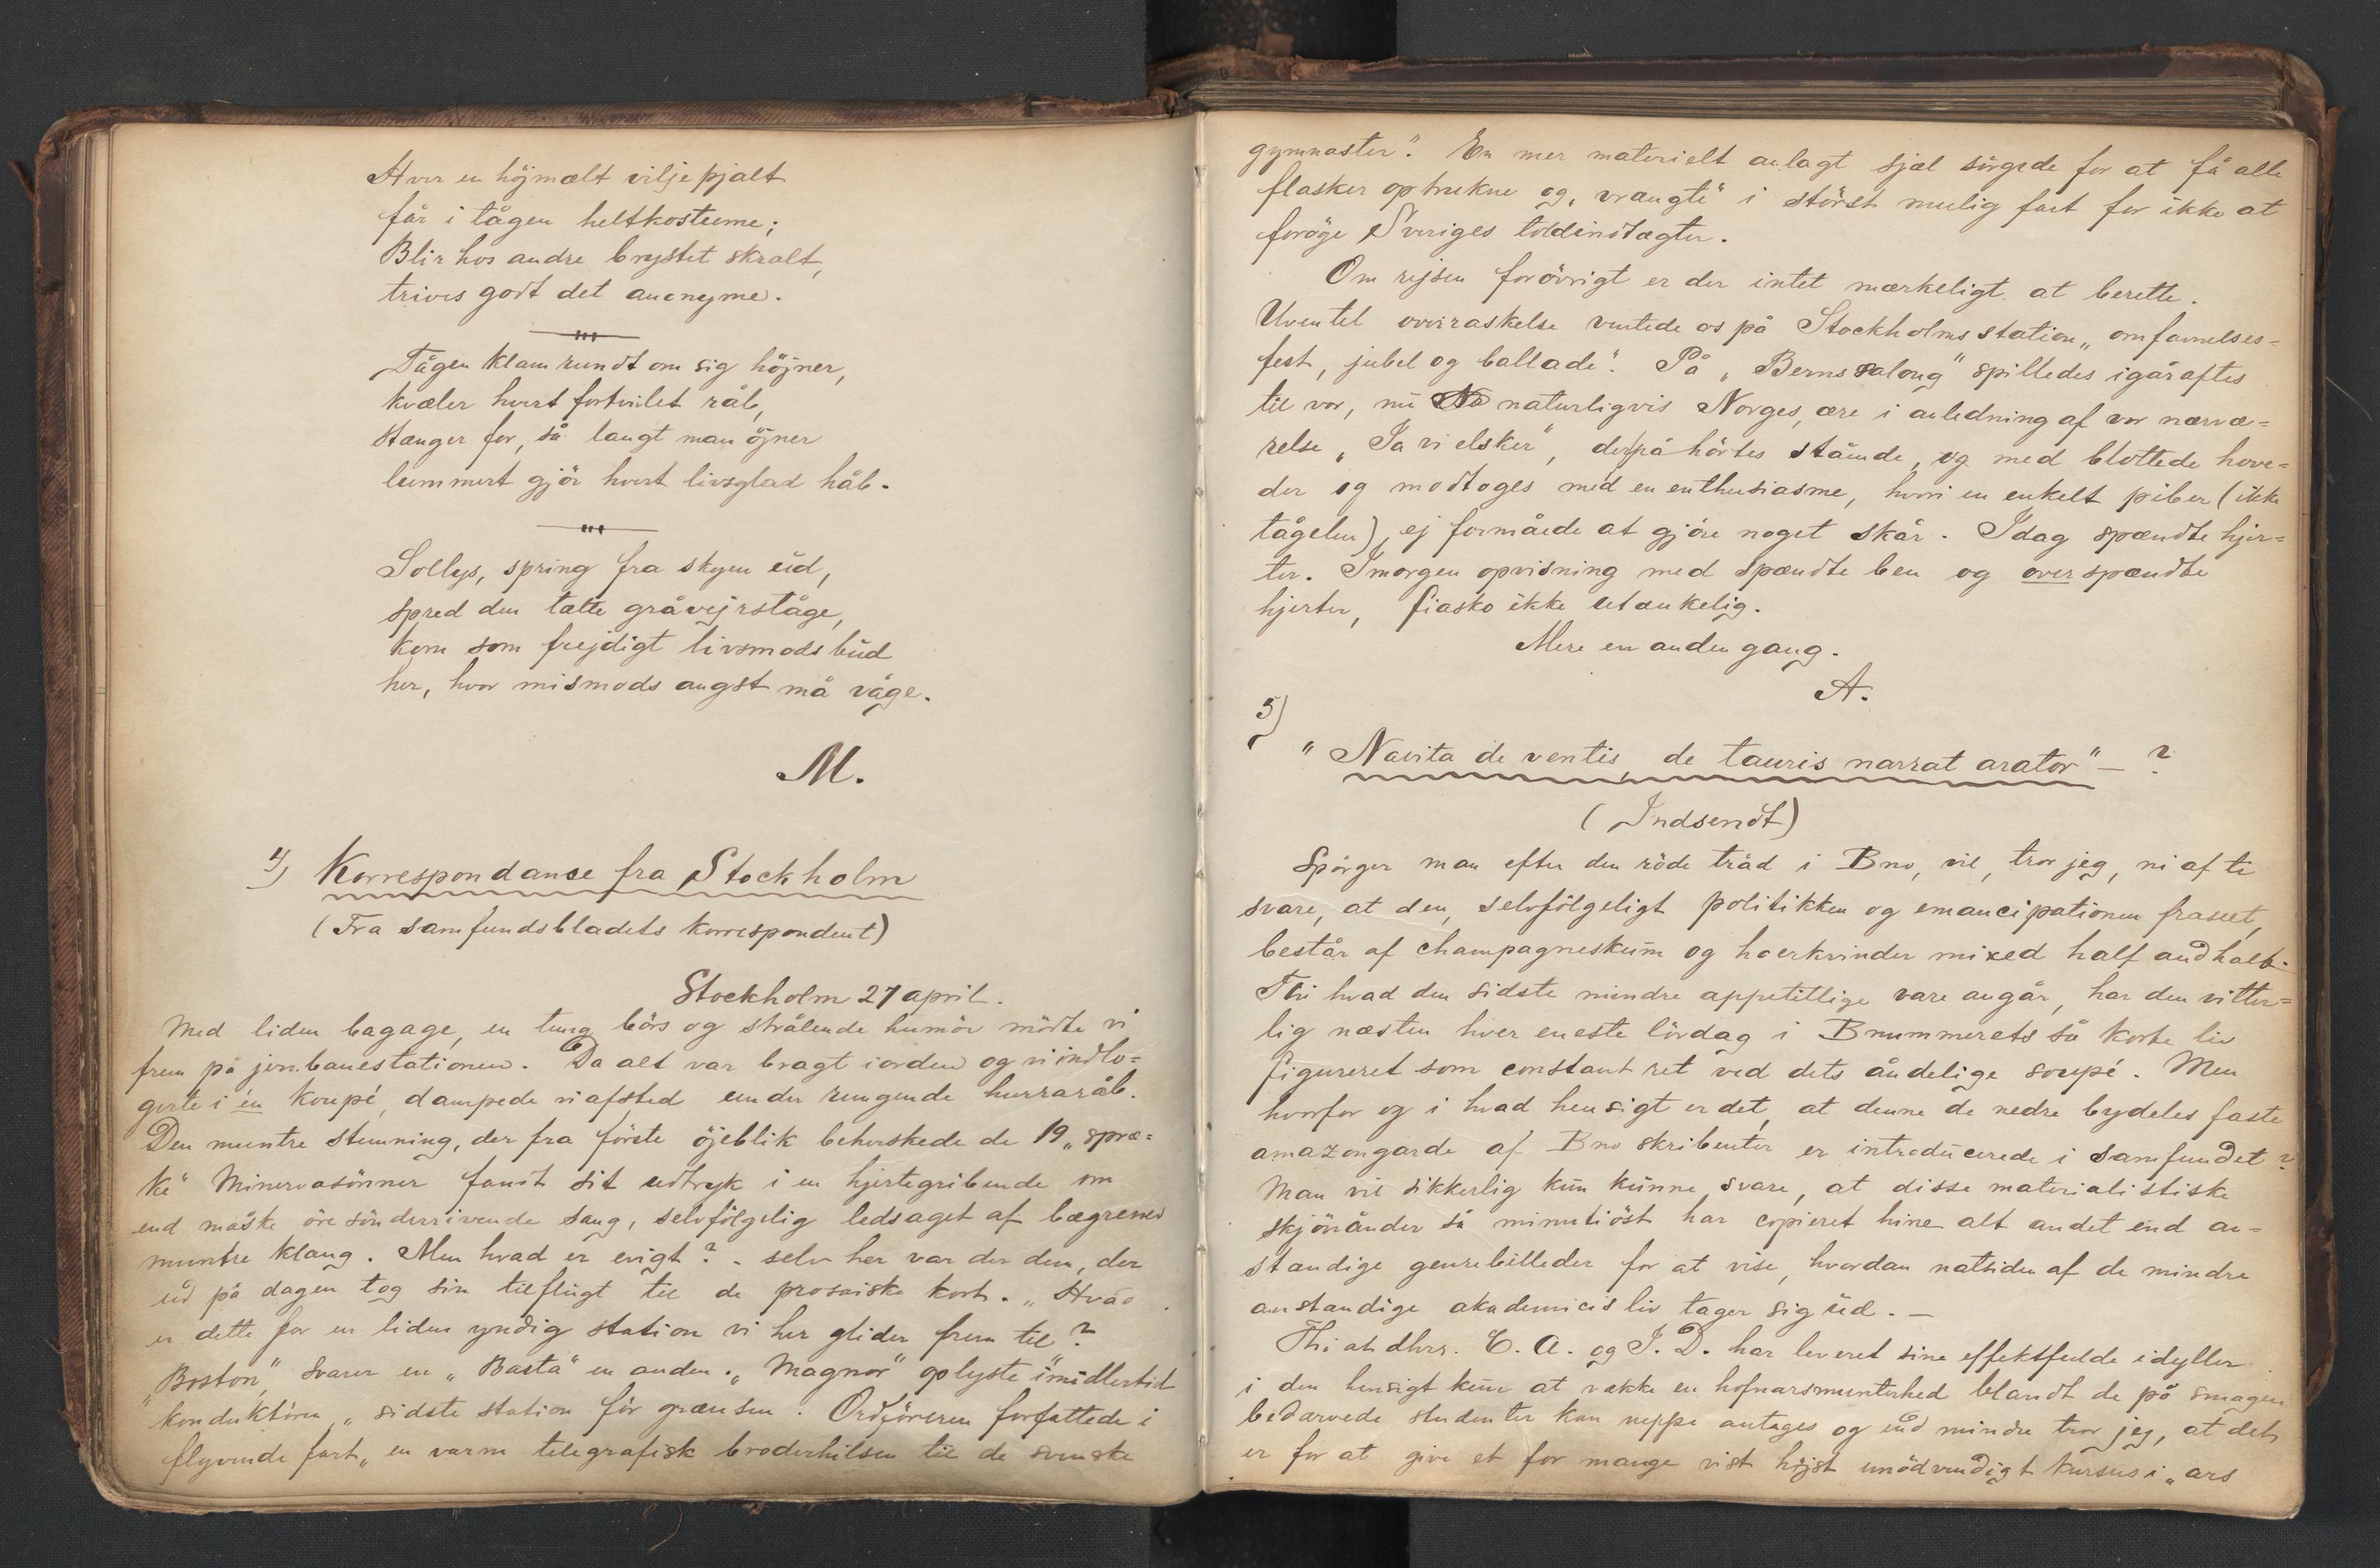 Hver en höjmælt viljepjalt
får i tågen heltkostume;
Blir hos andre brystet skralt,
trives godt det anonyme.
Tågen klam rundt om sig höjner,
kvæler hvert fortvilet råb,
stænger for, så langt man öjner
lummert gjör hvert livsglad håb.
Sollys, spring fra skyen ud,
spred den tætte gråvejrståge,
kom som frejdigt livsmods bud
her, hvor mismods angst må våge.
M.
4) Korrespondanse fra Stockholm
(Fra samfundsbladets korrespondent)
Stockholm 27 april.
Med liden bagage, en tung börs og strålende humör mödte vi
frem på jernbanestationen. Da alt var bragt i orden og vi indlo=
gerte i én koupé, dampede vi afsted under rungende hurraråb.
Den muntre stemning, der fra förste öjeblik beherskede de 19 „spræ=
ke" Minervasönner fandt sit udtryk i en hjertegribende om
end måske öresönderrivende sang, selvfölgelig ledsaget af bægrenes
muntre klang. Men hvad er evigt? - selv her var der dem, der
ud på dagen tog sin tilflugt til de prosaiske kort. „Hvad
er dette for en liden yndig station vi her glider frem til?
„Boston", svarer en „Basta" en anden. „Magnor" oplyste imidlertid
konduktören, „sidste station för grænsen". Ordföreren forfattede i
flyvende fart „en varm telegrafisk broderhilsen til de svenske
gymnaster". En mer materielt anlagt sjæl sörgede for at få alle
flasker optrukne og „vrængte" i störst mulig fart for ikke at
foröge Sveriges toldindtægter.
Om rejsen forövrigt er der intet mærkeligt at berette.
Uventet overraskelse ventede os på Stockholms station „omfavnelses=
fest, jubel og ballade". På „Berns salong" spilledes igåraftes
til vor, nu No naturligvis Norges, ære i anledning af vor nærvæ=
relse „Ja vi elsker", derpå hörtes stående, og med blottede hove=
der og modtoges med en enthusiasme, hvori en enkelt piber (ikke
tågelur), ej formåede at gjöre noget skår. Idag spændte hjer=
ter. Imorgen opvisning med spændte ben og overspændte
hjerter, fiasko ikke utænkelig.
Mere en anden gang.
A.
5)
"Navita de ventis, de tauris narrat arator" — ?
(Indsendt)
Spörger man efter den röde tråd i Bno, vil, tror jeg, ni af ti
svare, at den, selvfölgeligt politikken og emancipationen fraseet,
består af champagneskum og hoerkvinder mixed half and half.
Thi hvad den sidste mindre appetitlige vare angår, har den vitter=
lig næsten hver eneste lördag i Bnummerets så korte liv
figureret som constant ret ved dets åndelige soupé. Men
hvorfor og i hvad hensigt er det, at denne de nedre bydeles faste
amazongarde af Bno skribenter er introducerede i Samfundet?
Man vil sikkerlig kun kunne svare, at disse materialistiske
skjönånder så minutiöst har copieret hine alt andet end an=
stændige genrebilleder for at vise, hvordan natsiden af de mindre
anstændige akademicis liv tager sig ud. —
Thi at dhrr. C. A. og J. D. har leveret sine effektfulde idyller
i den hensigt kun at vække en hofnarsmunterhed blandt de på smagen
bedærvede studenter kan neppe antages og end mindre tror jeg, at det
er for at give et for mange vist höjst unödvendigt kursus i „ars